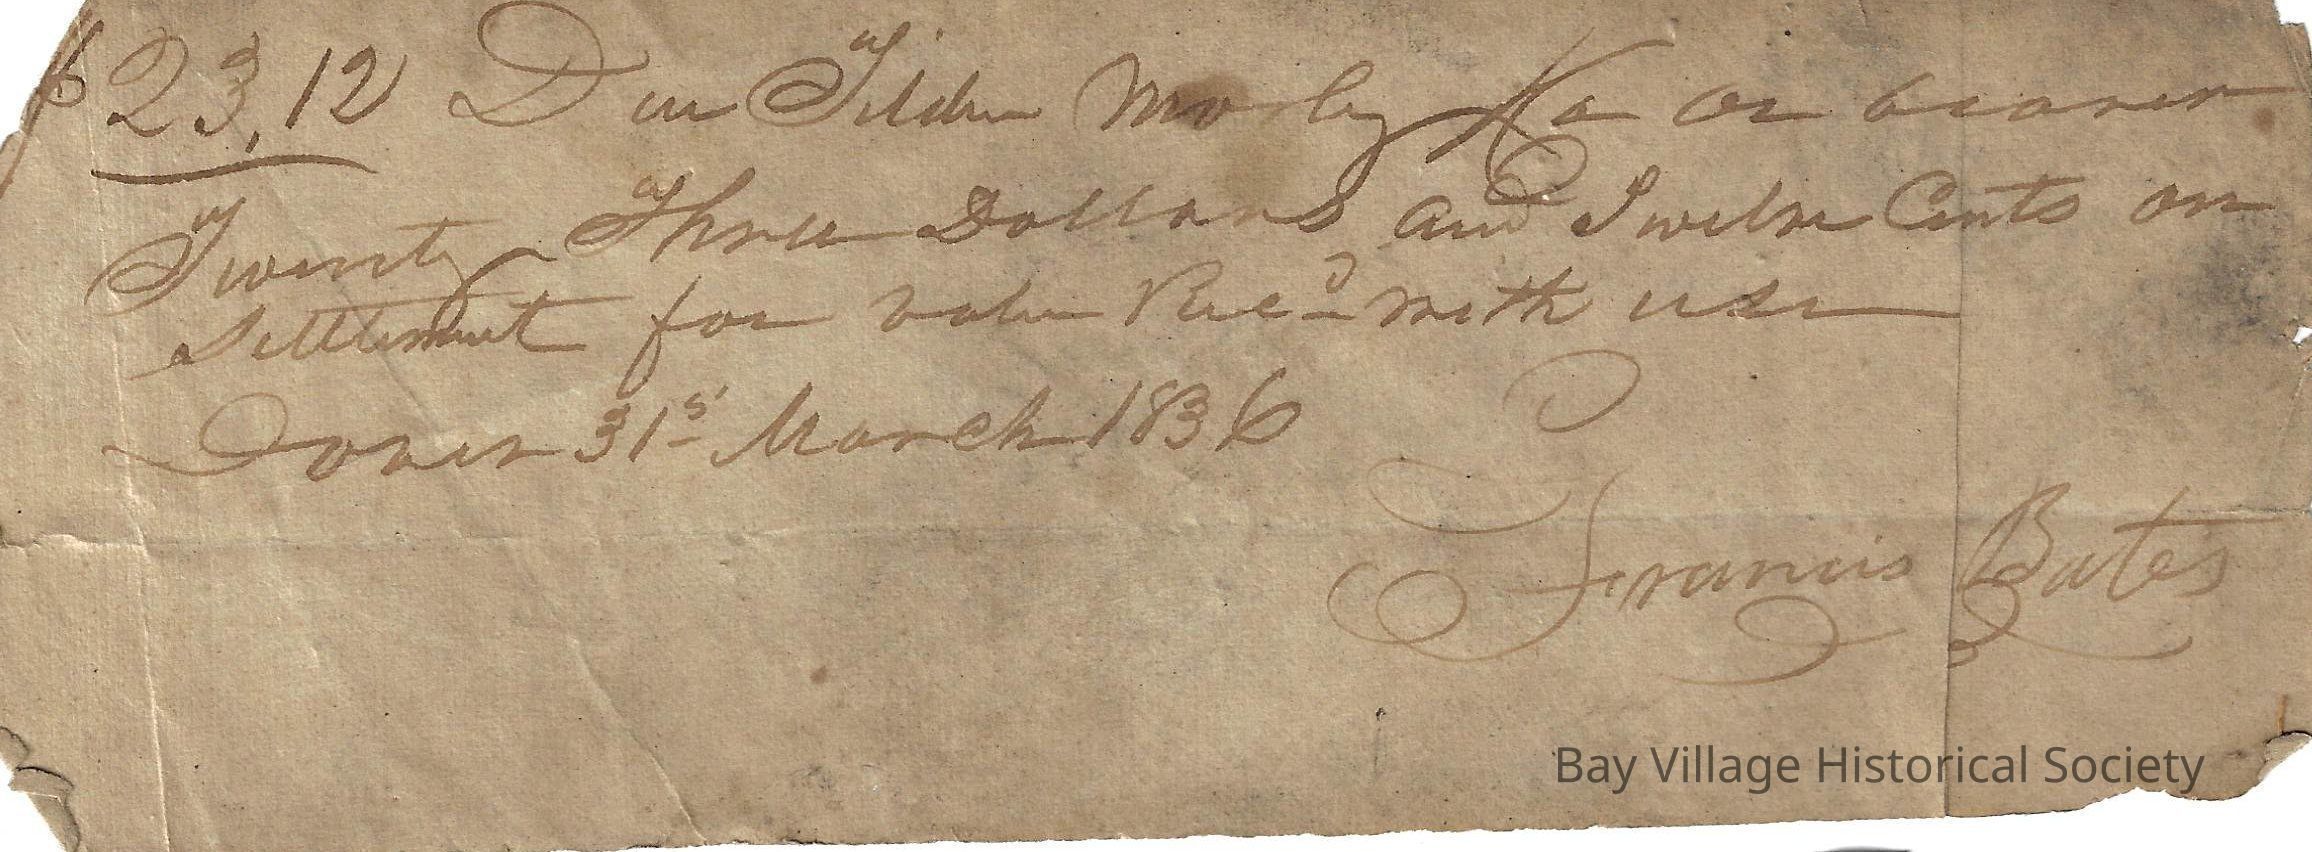 $23.12 Due Tilden Morley & Co or bearer
Twenty Three Dollars and Twelve Cents on
Settlement for value Rec^d with use
Dover 31^st March 1836
Francis Bates
Bay Village Historical Society